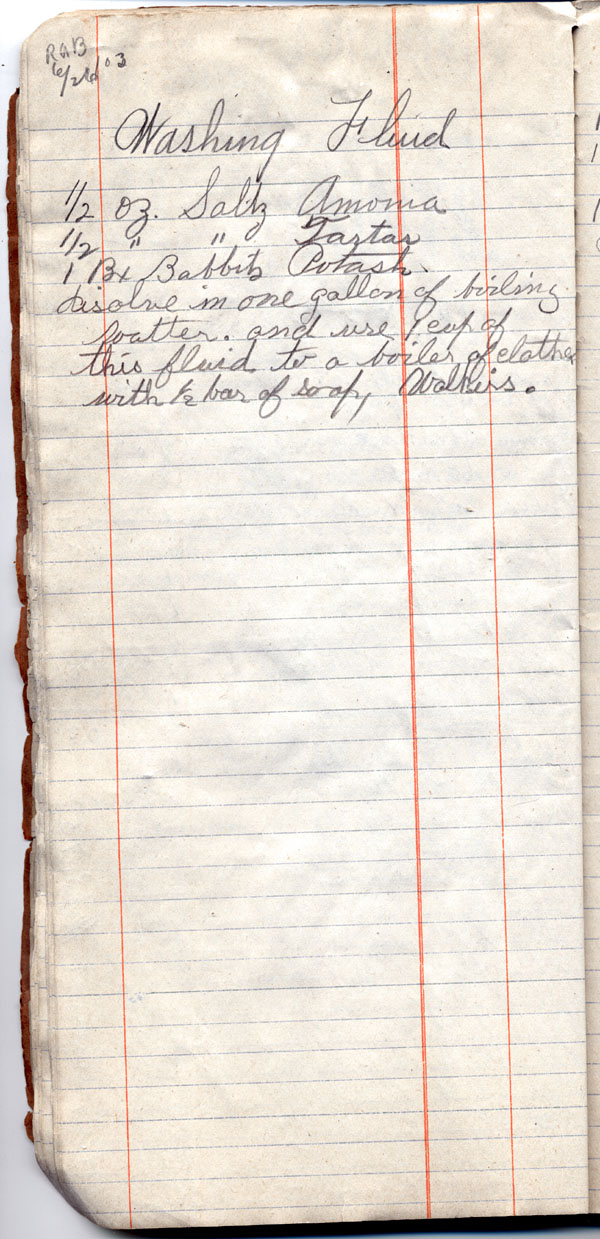 RAB
6/26/03
Washing Fluid
1/2 oz. Saltz Amonia
1/2 " " Tartar
1 Bx Babbitz Potash.
disolve in one gallon of boiling
watter. and use 1 cup of
this fluid to a boiler of clothes
with 1/2 bar of soap,